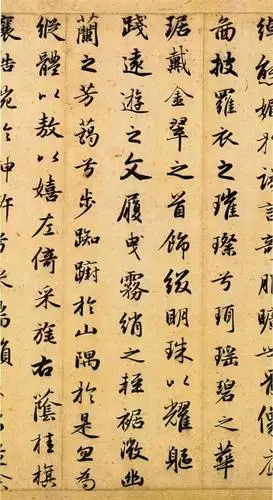 態媚於語言奇服曠世骨像應
圖披羅衣之璀璨兮珥瑤碧之華
琚戴金翠之首飾綴明珠以耀軀
踐遠遊之文履曳霧綃之輕裾微幽
蘭之芳藹兮步踟躕於山隅於是忽焉
縱體以敖以嬉左倚采旄右蔭桂旗
於神滸兮采湍瀨